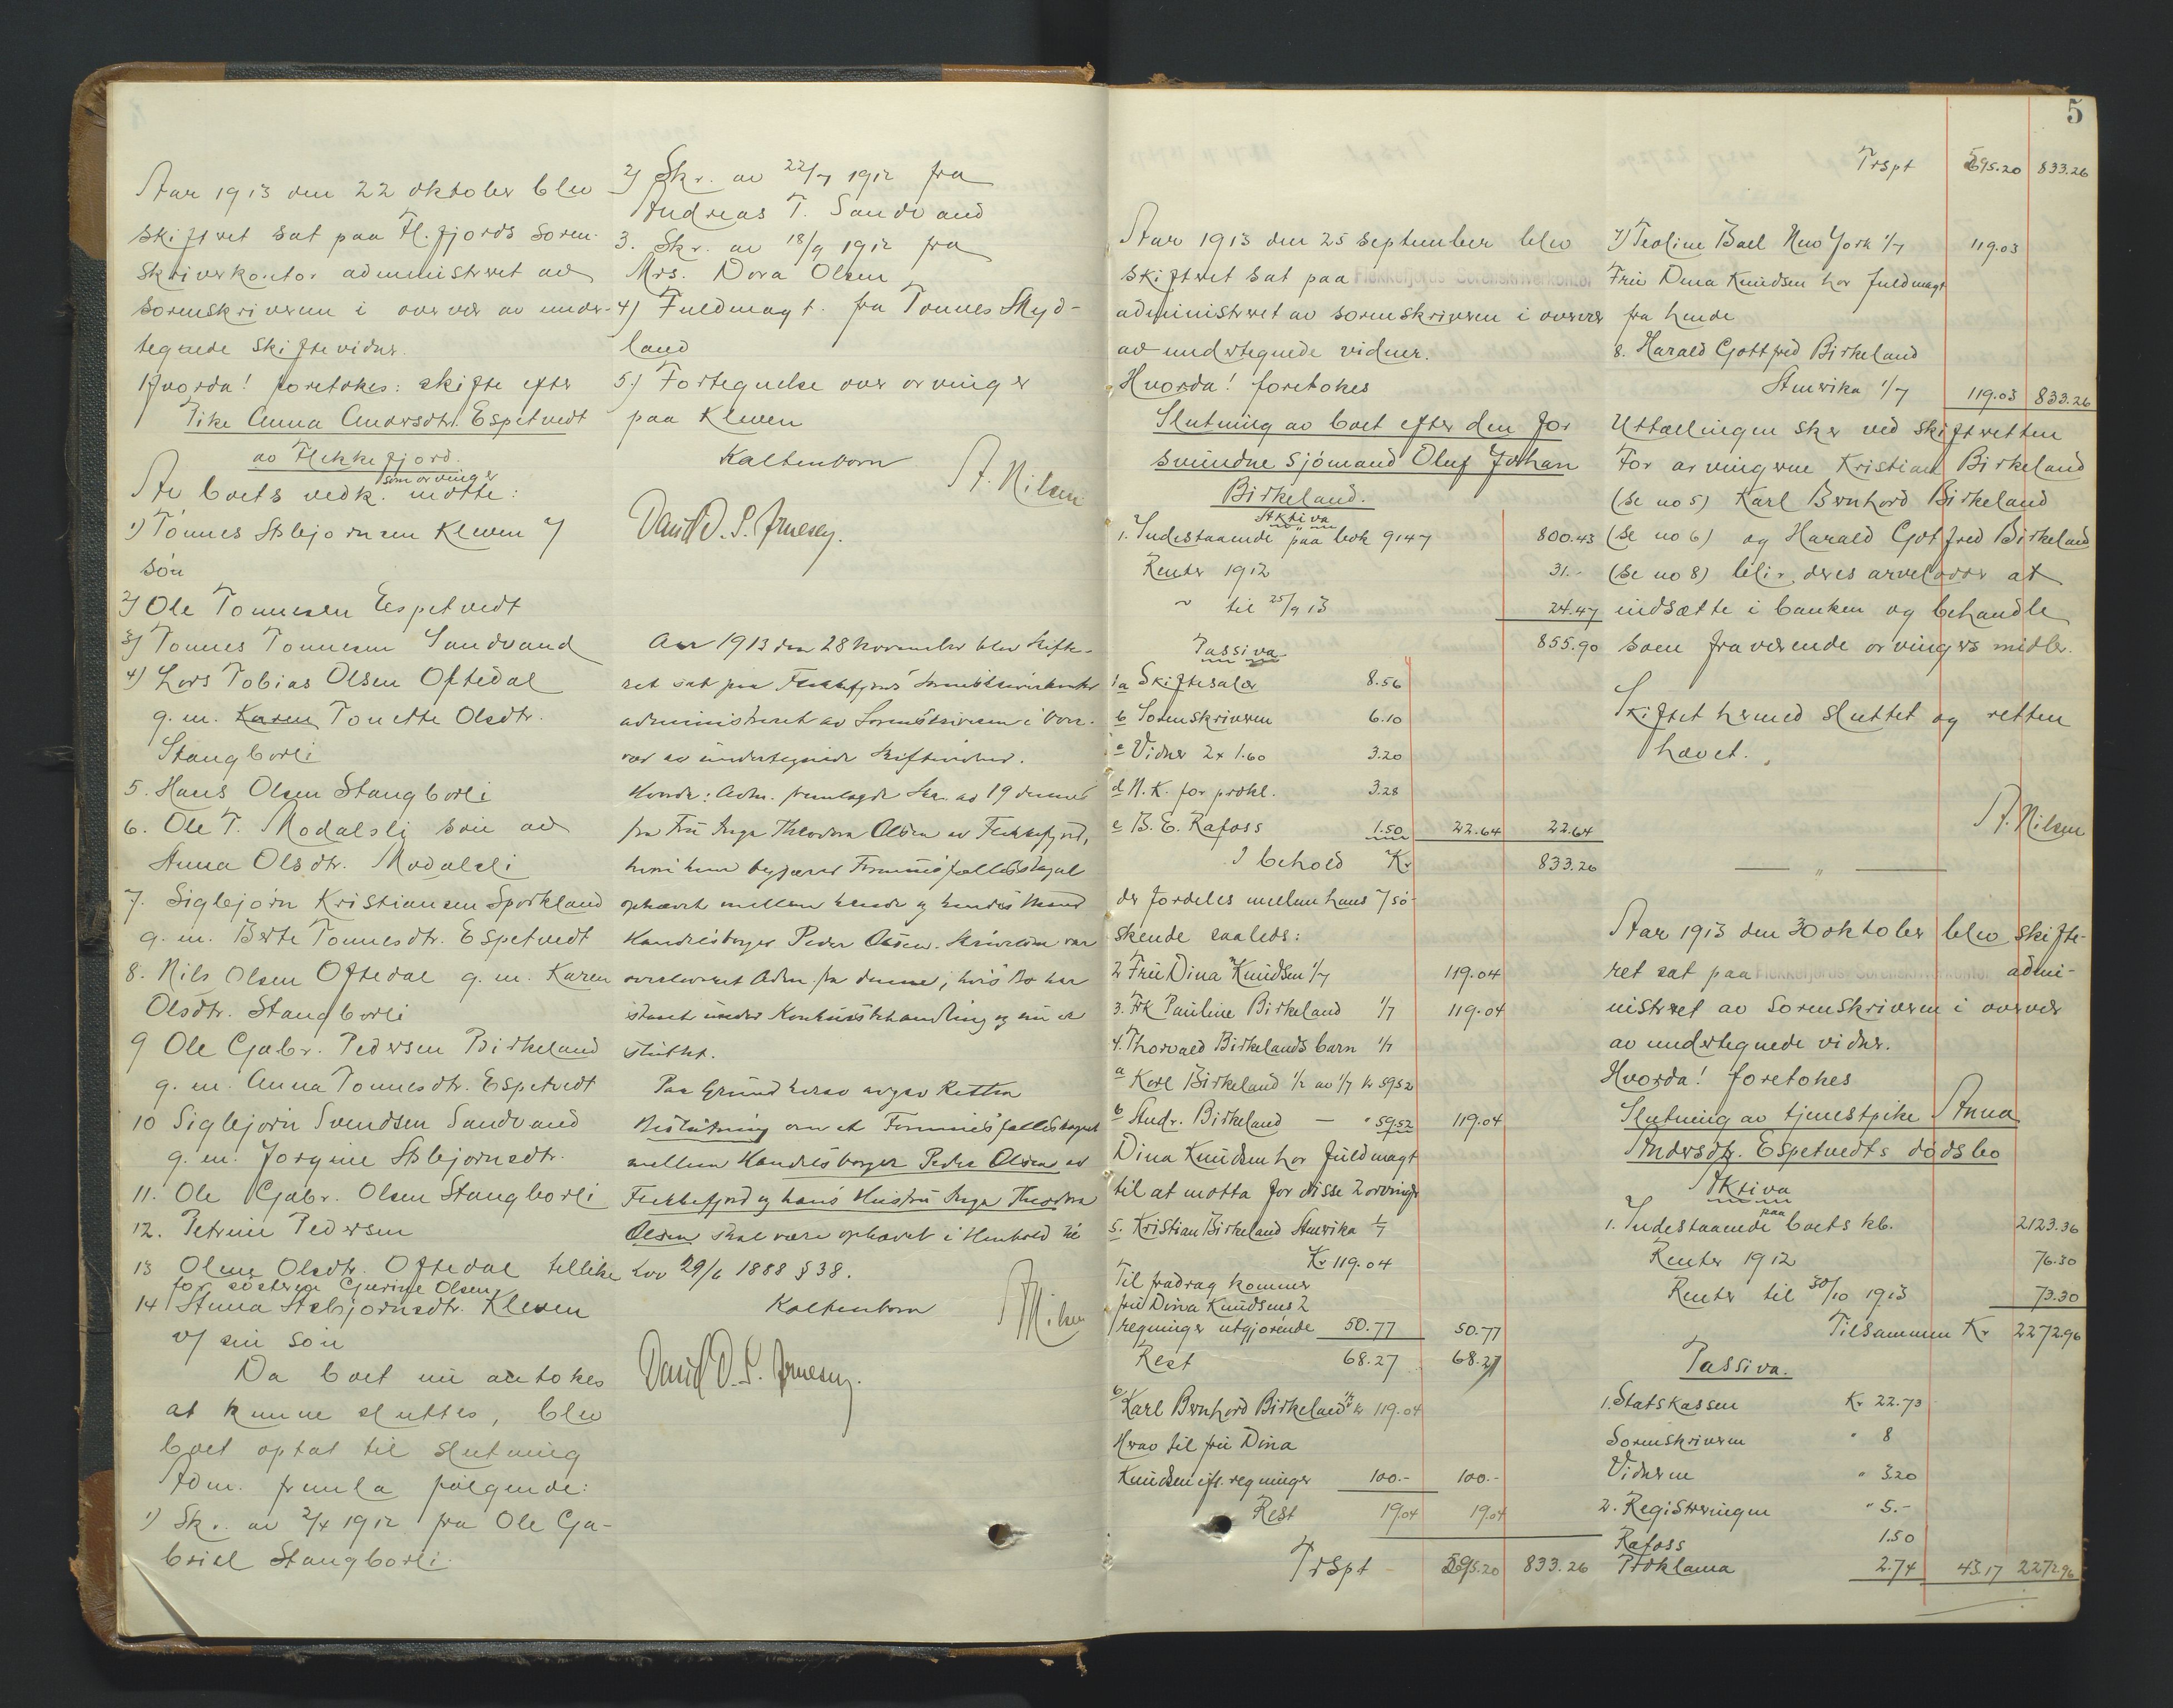 Aar 1913 den 22 oktober blev
skiftret sat paa Fl.fjords Soren-
skriverkontor administreret av
sorenskriveren i overvær av under-
tegnede skiftevidner.
Hvorda! foretokes: skifte efter
Pike Anna Andersdtr. Espetvedt
av Flekkefjord.
som arvinger
Av boets vedk. møtte:
1) Tønnes Asbjørnsen Kleven v/
søn
2) Ole Tønnesen Espetvedt
3) Tønnes Tønnesen Sandvand
4) Lars Tobias Olsen Oftedal
g.m. Karen Tonette Olsdtr.
Stangborli
5. Hans Olsen Stangborli
6. Ole T. Modalsli søn av
Anna Olsdtr. Modalsli
7. Sigbjørn Kristiansen Sporkland
g.m. Berte Tønnesdtr. Espetvedt
8. Nils Olsen Oftedal g.m. Karen
Olsdtr. Stangborli
9 Ole Gabr. Pedersen Birkeland
g.m. Anna Tønnesdtr. Espetvedt
10 Sigbjørn Svendsen Sandvand
g.m. Jørgine Asbjørnsdtr.
11. Ole Gabr. Olsen Stangborli
12. Petrine Pedersen
13 Olene Olsdtr. Oftedal tillike
for søsteren Gurine Olsen
14 Anna Asbjørnsdtr. Kleven
v/ sin søn
Da boet nu antokes
at kunne sluttes, blev
boet optat til slutning
Adm. fremla følgende:
1) Skr. av 2/4 1912 fra Ole Ga-
briel Stangborli.
2) Skr. av 22/7 1912 fra
Andreas T. Sandvand
3. Skr. av 18/9 1912 fra
Mrs. Dora Olsen
4) Fuldmagt fra Tønnes Skyd-
land
5) Fortegnelse over arvinger
paa Kleven
Kaltenborn
A. Nilsen
David D. S.
Aar 1913 den 28 November blev Skifte-
ret sat paa Flekkefjords Sorenskriverkontor
administreret av Sorenskriveren i Over-
vær av undertegnede Skiftevidner.
Hvorda: Adm. fremlagde Skr. av 19 dennes
fra Fru Inga Theodora Olsen av Flekkefjord,
hvori hun begjærer Formuesfællesskapet
ophævet mellem hende og hendes Mand
Handelsborger Peder Olsen. Skrivelsen var
oversendt Adm. fra denne, hvis Bo har
staaet under Konkursbehandling og nu er
sluttet.
Paa Grund herav avgav Retten
Beslutning om at Formuesfællesskapet
mellem Handelsborger Peder Olsen av
Flekkefjord og hans Hustru Inga Theodora
Olsen skal være ophævet i Henhold til
Lov 29/6 1888 § 38.
Kaltenborn
A Nilsen
David D. S.
5
Aar 1913 den 25 september blev
skiftret sat paa Flekkefjords Sorenskriverkontor
administreret av sorenskriveren i overvær
av undertegnede vidner.
Hvorda! foretokes
Slutning av boet efter den for
svundne sjømand Oluf Johan
Birkeland.
Aktiva
1. Indestaaende paa bok 9147 800.43
Renter 1912 31.-
" til 25/9 13 24.47
855.90
Passiva
1a Skiftesalær 8.56
b Sorenskriveren 6.10
c Vidner 2 x 1.60 3.20
d N. K. for prokl. 3.28
e B. E. Rafoss 1.50 22.64 22.64
I behold Kr 833.26
der fordeles mellem hans 7 sø-
skende saaleds:
2 Fru Dina Knudsen 1/7 119.04
3. Frk Pauline Birkeland 1/7 119.04
4. Thorvald Birkelands barn 1/7
a Karl Birkeland 1/2 av 1/7 kr 59.52
b Andr. Birkeland — " 59.52 119.04
Dina Knudsen har fuldmagt
til at motta for disse 2 arvinger
5. Kristian Birkeland Amerika 1/7
Kr 119.04
Til fradrag kommer
fru Dina Knudsens 2
regninger utgjørende 50.77 50.77
Rest 68.27 68.27
6/ Karl Bernhard Birkeland 1/7 kr 119.04
Herav til fru Dina
Knudsen ifl. regninger 100.- 100.-
Rest 19.04 19.04
Trspt 595.20 833.26
Trspt 595.20 833.26
7) Teoline Bael New York 1/7 119.03
Fru Dina Knudsen har fuldmagt
fra hende
8. Harald Gottfred Birkeland
Amerika 1/7 119.03 833.26
Uttællingen sker ved skifteretten
For arvingerne Kristian Birkeland
(se no 5) Karl Bernhard Birkeland
(se no 6) og Harald Gotfred Birkeland
(se no 8) blir deres arvelodder at
indsætte i banken og behandle
som fraværende arvingers midler.
Skiftet hermed sluttet og retten
hævet.
A. Nilsen
Aar 1913 den 30 oktober blev skifte-
ret sat paa Flekkefjords Sorenskriverkontor admi-
nistreret av sorenskriveren i overvær
av undertegnede vidner.
Hvorda! foretokes
Slutning av tjenestpike Anna
Andersdtr. Espetvedts dødsbo
Aktiva
1. Indestaaende paa boets kb. 2123.36
Renter 1912 76.30
Renter til 30/10 1913 73.30
Tilsammen Kr 2272.96
Passiva.
1. Statskassen Kr 22.73
Sorenskriveren " 8
Vidnerne " 3.20
2. Registreringen " 5.-
Rafoss 1.50
Proklama 2.74 43.17 2272.96